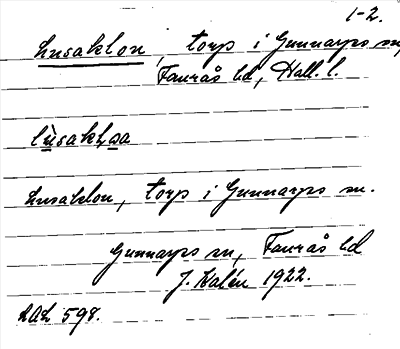 1-2.
Lusaklon, torp i Gunnarps sn,
Faurås hd, Hall. l.
lùsakḷa
Lusaklon, torp i Gunnarps sn.
Gunnarps sn, Faurås hd
J. Kalén 1922.
LAL 598.